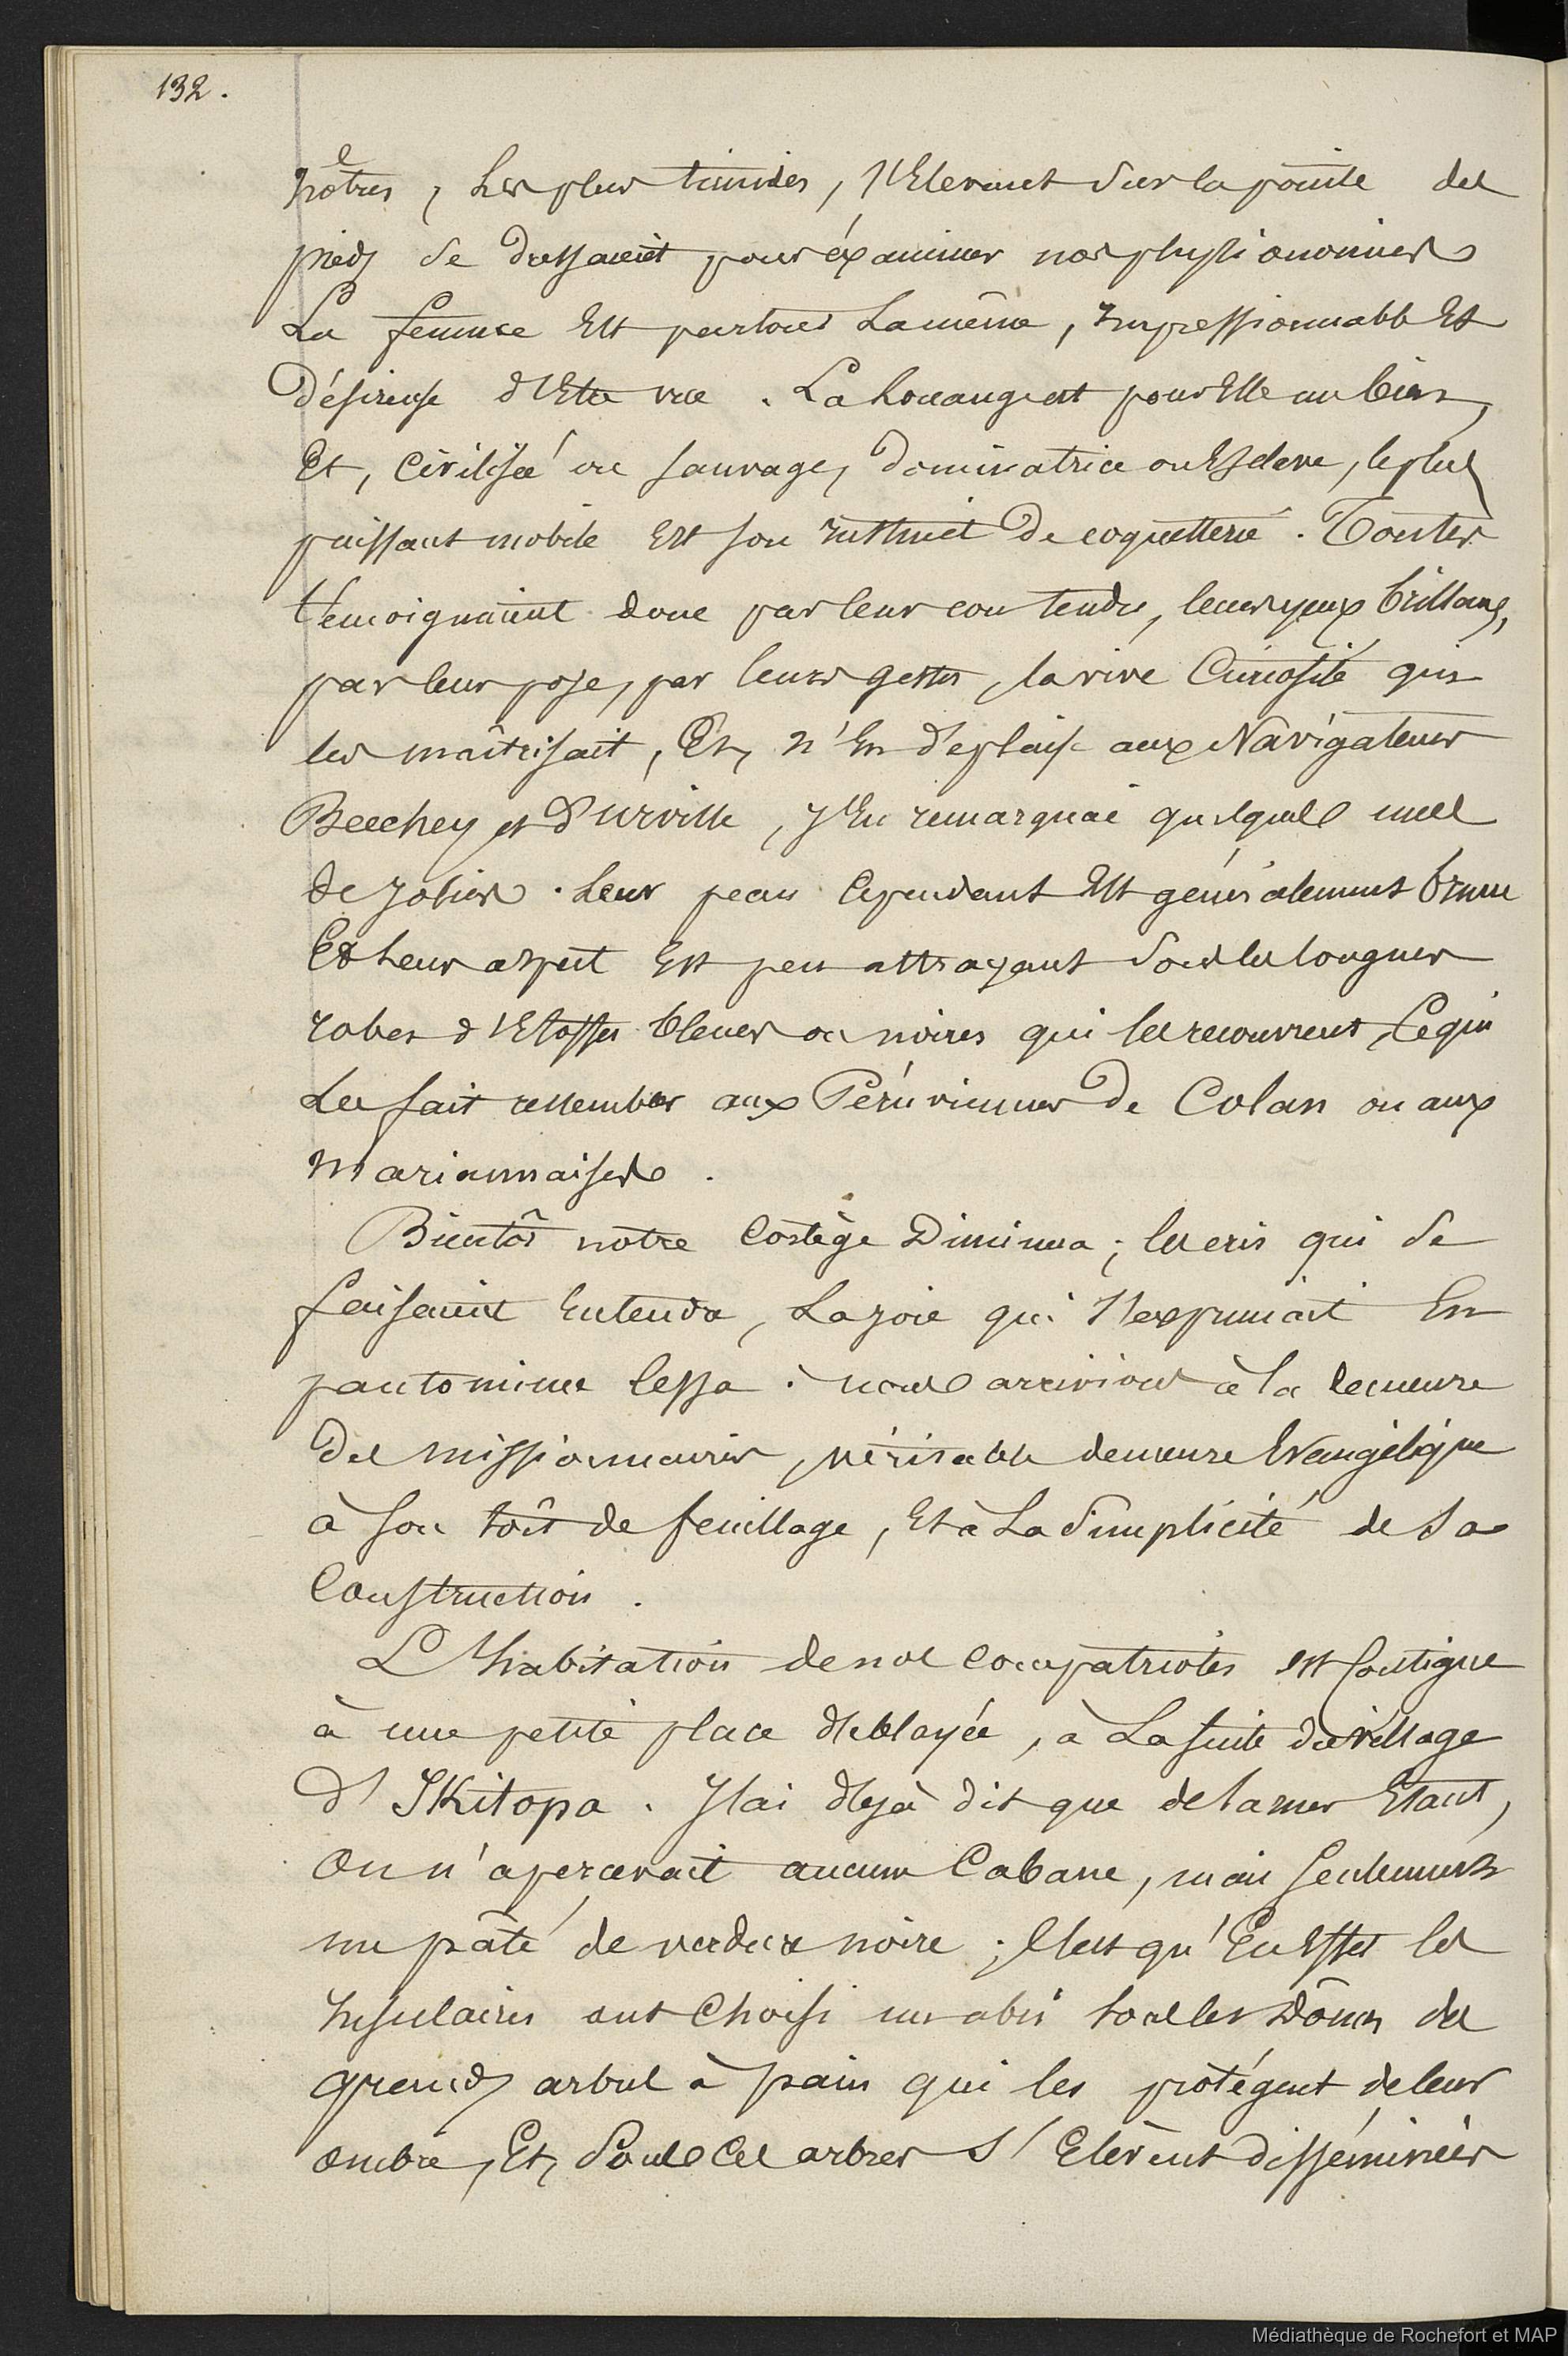 132.
nôtres, Les plus timides, s'Elevant sur la pointe des
pieds se dressaient pour éxaminer nos physionomies
La femme Est partout La même, Impressionnable Et
Désireuse d'Etre vue. La Louange est pour Elle un bien,
Et, Civilisée ou sauvage, Dominatrice ou Esclave, le plus
puissant mobile Est son Instinct De coquetterie. Toutes
témoignaient donc par leur cou tendu, leurs yeux brillans,
par leur pose, par leurs gestes, la vive Curiosité qui
les maîtrisait, Et, n'En déplaise aux Navigateurs
Beechey et D'urville, J'En remarquai quelques unes
de Jolies. Leur peau Cependant Est généralement brune
Et Leur aspect Est peu attrayant sous les longues
robes d'Etoffes bleues ou noires qui les recouvrent, Ce qui
Les fait ressembler aux Péruviennes De Colan ou aux
Mariannaises.
Bientôt notre Cortège Diminua; les cris qui se
faisaient Entendre, La joie qui s'exprimait En
pantomime Cessa. nous arrivions à la demeure
Des missionnaires, véritable demeure Evangélique
à son toît de feuillage, Et à La Simplicité de sa
Construction.
L'habitation de nos Compatriotes est Contigue
à une petite place déblayée, à La suite du village
D'IKitopa. J'ai déjà dit que de la mer Etant,
On n'apercevait aucune Cabane, mais seulement
un pâté de verdure noire; C'est qu'En Effet les
Insulaires ont Choisi un abri sous les Dômes des
grands arbres à pain qui les protégent de leur
ombre, Et, Sous Ces arbres S'Elèvent disséminées
Médiathèque de Rochefort et MAP